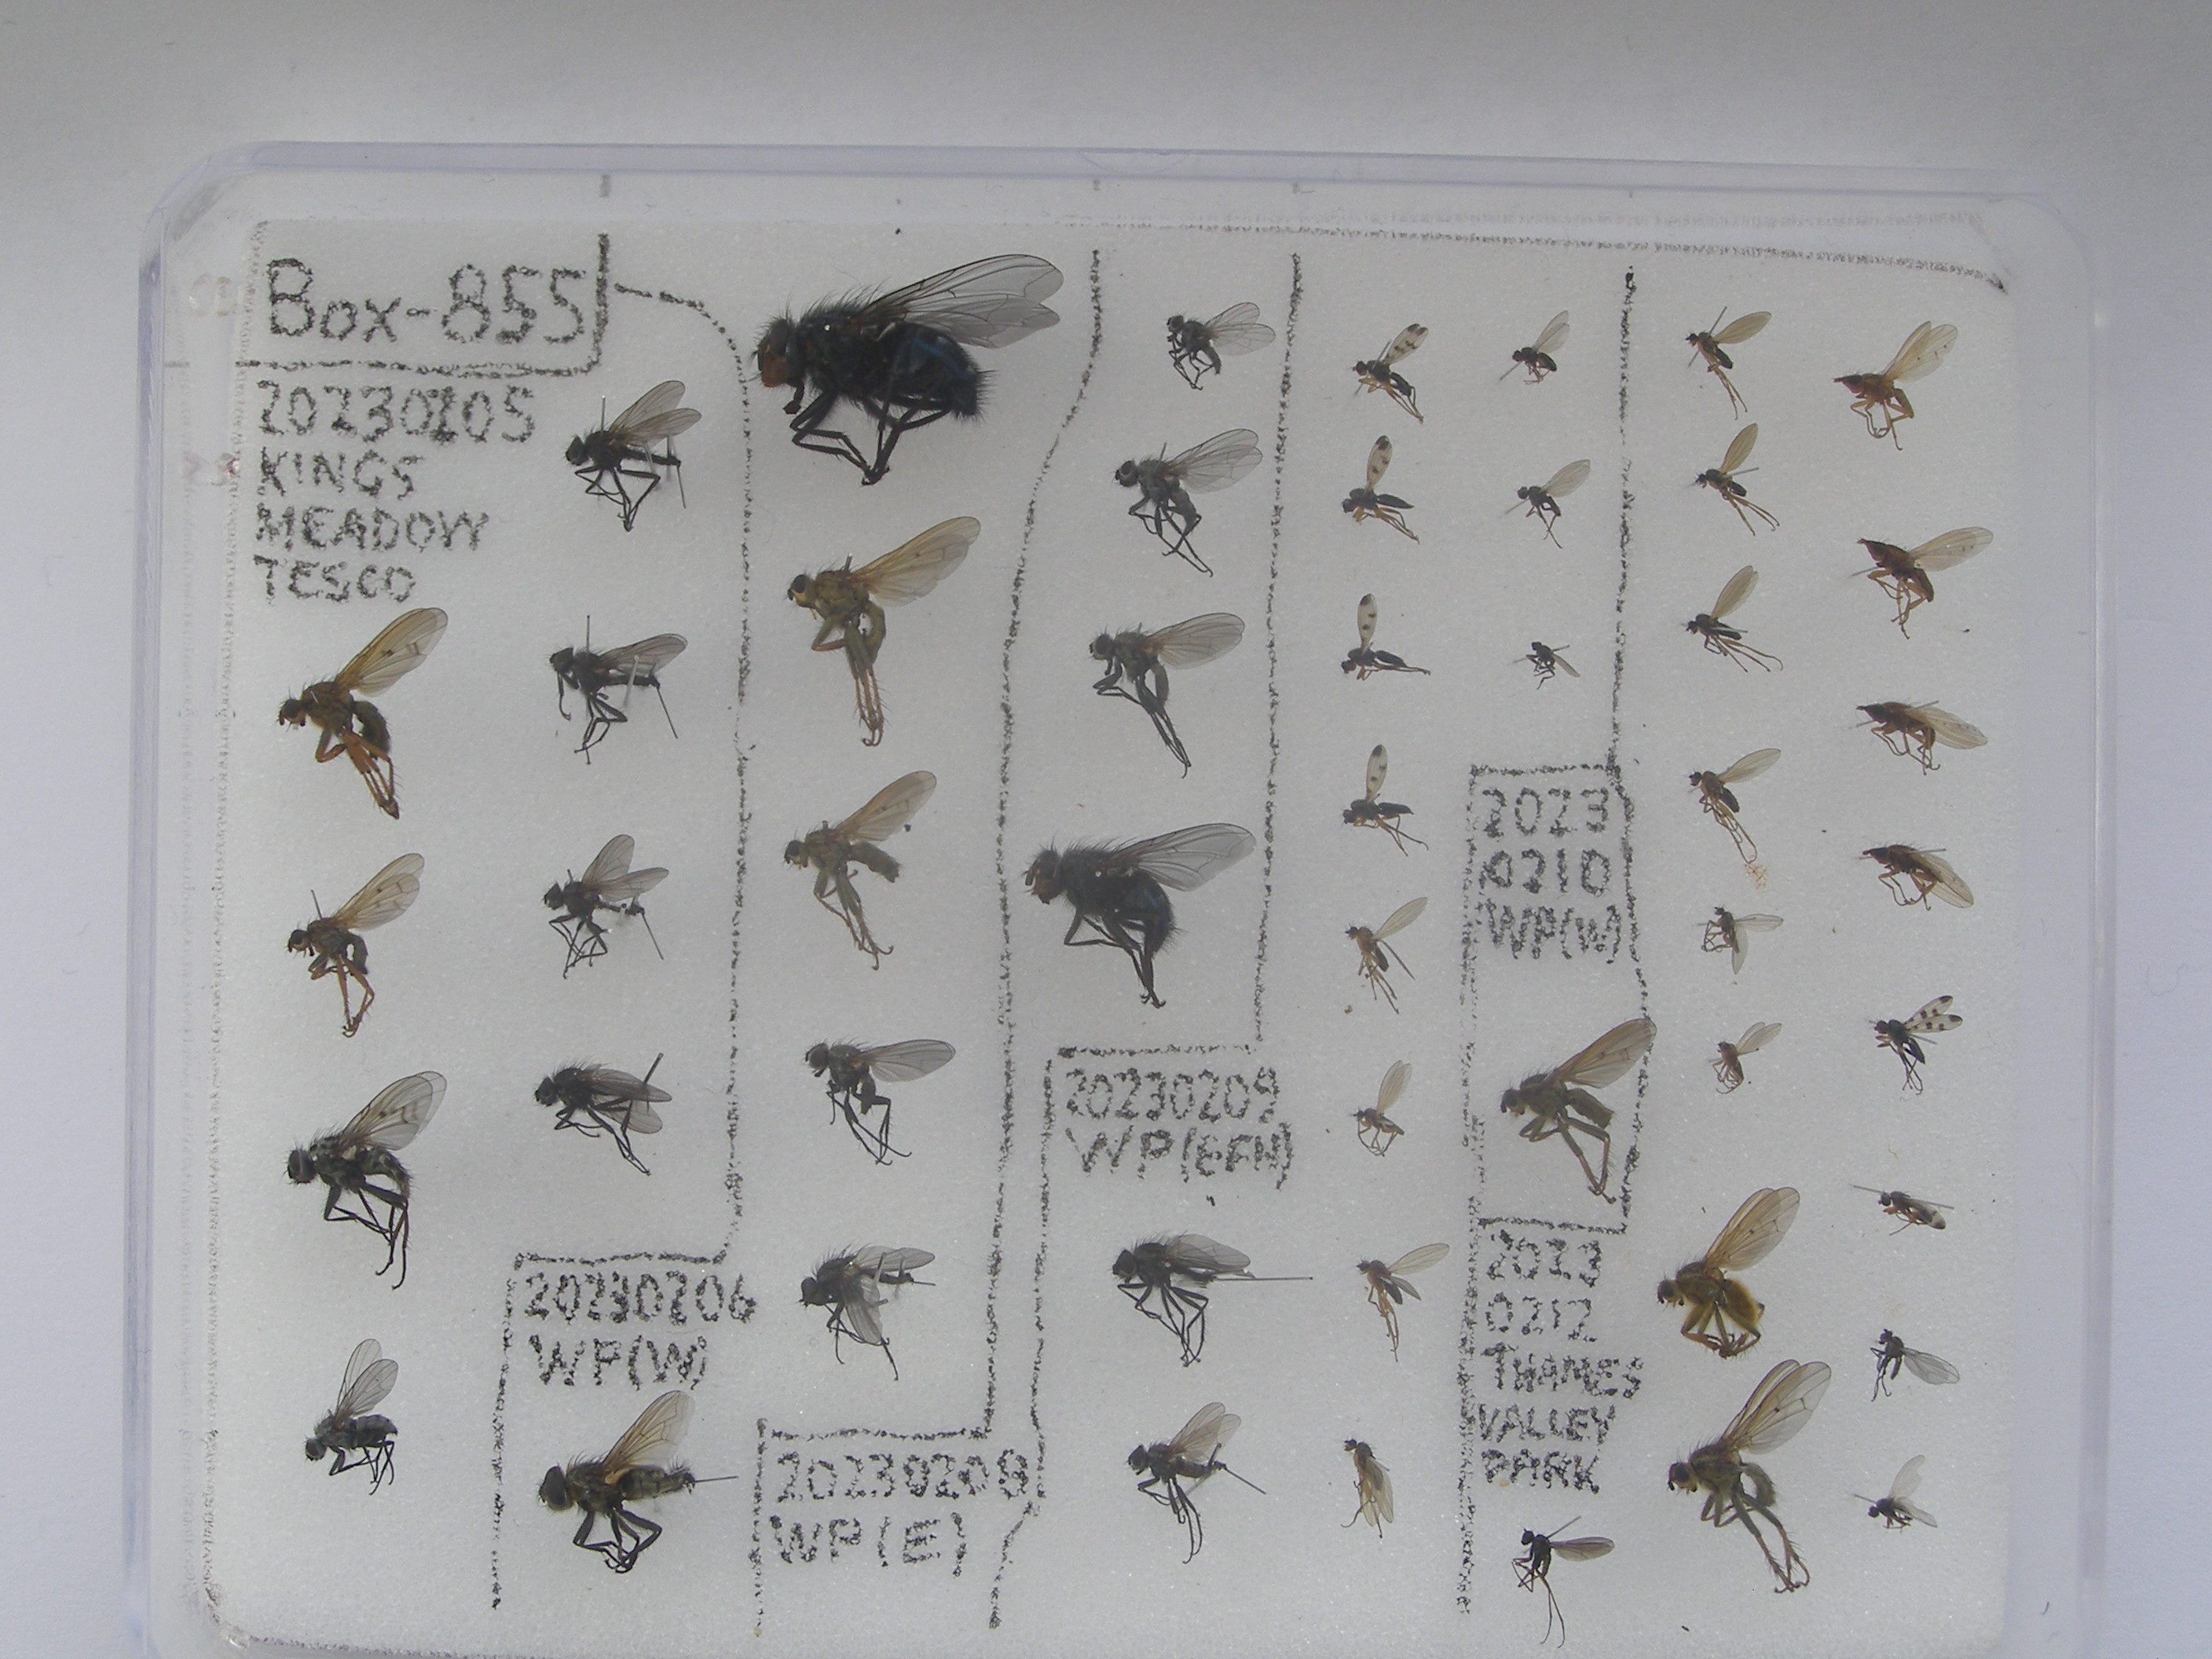 Box-855
20230205
KINGS
MEADOW
TESCO
20230206
WP(W)
20230208
WP(E)
20230209
WP(EFH)
2023
0210
WP(W)
2023
0212
THAMES
VALLEY
PARK